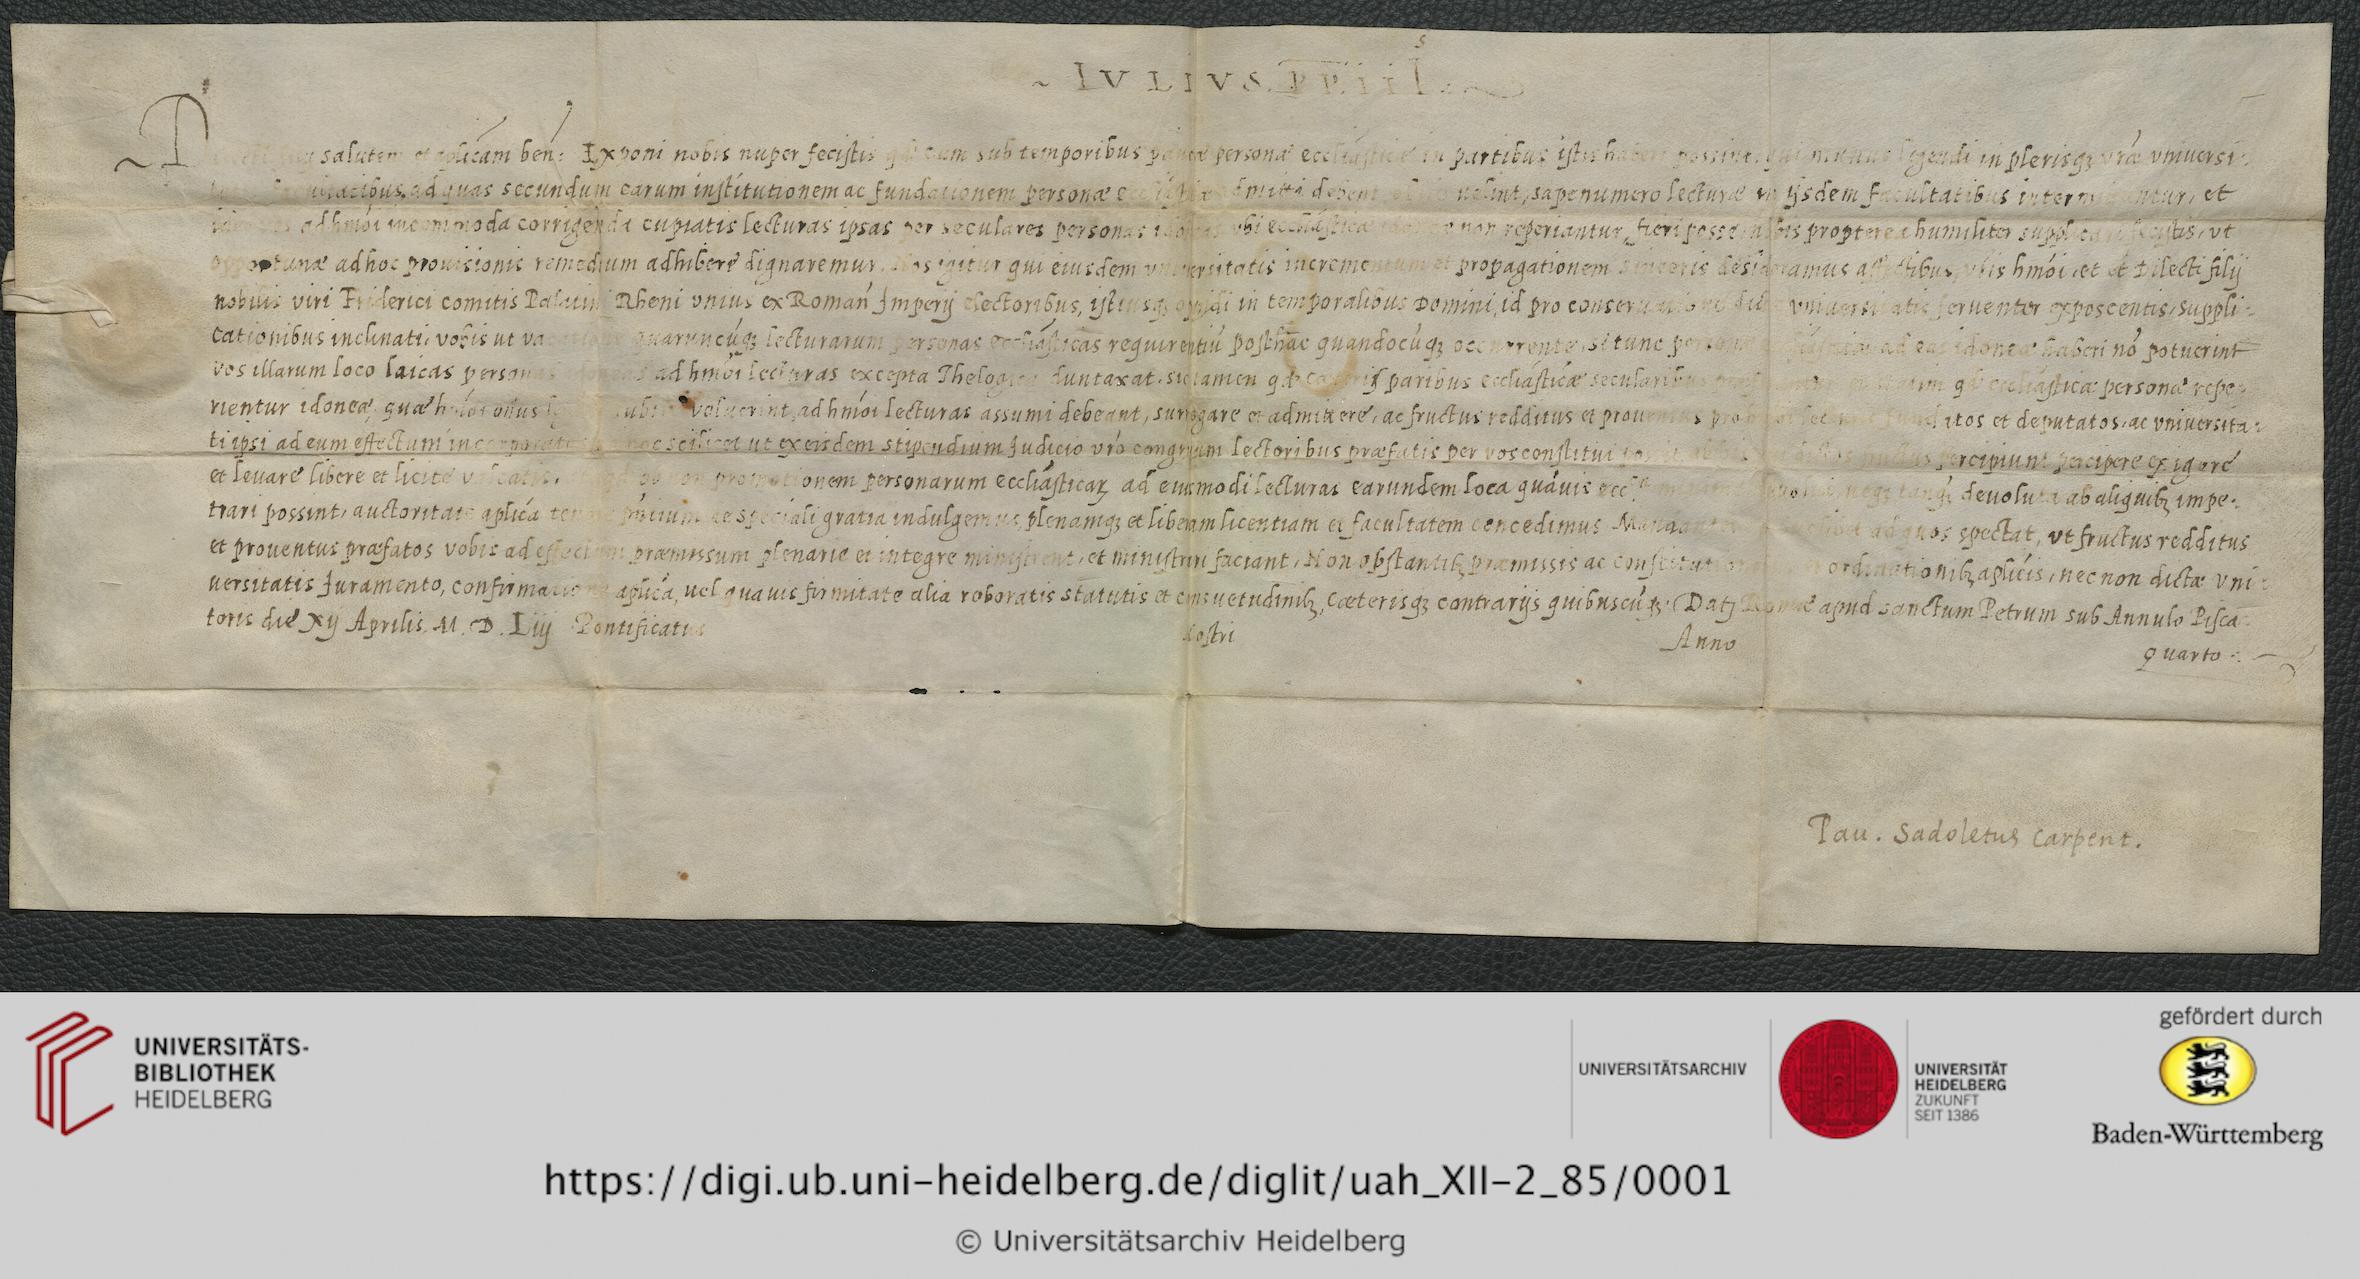 IVLIVS PP iii
salutem et aplicam ben: Exponi nobis nuper fecistis qd cum sub temporibus personæ ecclíasticæ in partibus istis haberi possint, qui munus legendi in plerisq; vræ vniversi-
facultatibus, ad quas secundum earum institutionem ac fundationem personæ admitti debent velint, sæpenumero lecturæ in ijsdem facultatibus intermittantur, et
ad hmói incommoda corrigenda cupiatis lecturas ipsas per seculares personas idoneas vbi ecclíasticæ idoneæ non reperiantur, fieri posse, nobis propterea humiliter supplicari fecistis, ut
opportunæ ad hoc provisionis remedium adhibere dignaremur. Nos igitur qui eiusdem vniversitatis incrementum et propagationem sinceris desideramus affectibus, vris hmói, et Dilecti filij
nobilis viri Friderici comitis Palatini Rheni vnius ex Roman Imperij electoribus, istiusq; oppidi in temporalibus Domini, id pro conservatione dictæ vniversitatis ferventer exposcentis, suppli-
cationibus inclinati, vobis ut vacatione quaruncúq; lecturarum personas ecclíasticas requirentiú posthac quandocúq; occurrente, si tunc personæ ad eas idoneæ haberi nó potuerint
vos illarum loco laicas personas idoneas ad hmói lecturas excepta Thelogica duntaxat, sic tamen qd cæteris paribus ecclíasticæ secularibus qd ecclíasticæ personæ repe-
rientur idoneæ, quæ hmói onus subire voluerint, ad hmói lecturas assumi debeant, surrogare et admittere, ac fructus redditus et proventus pro et deputatos, ac vniversita-
ti ipsi ad eum effectum incorporatos hoc scilicet ut ex eisdem stipendium Judicio vro congruum lectoribus præfatis per vos constitui percipiunt percipere exigere
et levare libere et licite valeatis, promotionem personarum ecclíasticar ad eiusmodi lecturas earundem loca quævis neq; tanq; devoluta ab aliquib; impe-
trari possint, auctoritate aplica tenore pntium de speciali gratia indulgemus, plenamq; et liberam licentiam et facultatem concedimus Mandantes ad quos spectat, ut fructus redditus
et proventus præfatos vobis ad effectum præmissum plenarie et integre ministrent, et ministrari faciant, Non obstantib; præmissis ac constitutionibus et ordinationib; aplicis, nec non dictæ vni-
versitatis Juramento, confirmatione aplica, vel quavis firmitate alia roboratis statutis et consuetudinib;, Cæterisq; contrarijs quibuscúq; Dat; Romæ apud sanctum Petrum sub Annulo Pisca-
toris die xij Aprilis M. D. Liij Pontificatus nostri Anno quarto
Pau. Sadoletus Carpent.
UNIVERSITÄTS-
BIBLIOTHEK
HEIDELBERG
UNIVERSITÄTSARCHIV
UNIVERSITÄT
HEIDELBERG
ZUKUNFT
SEIT 1386
gefördert durch
Baden-Württemberg
https://digi.ub.uni-heidelberg.de/diglit/uah_XII-2_85/0001
© Universitätsarchiv Heidelberg